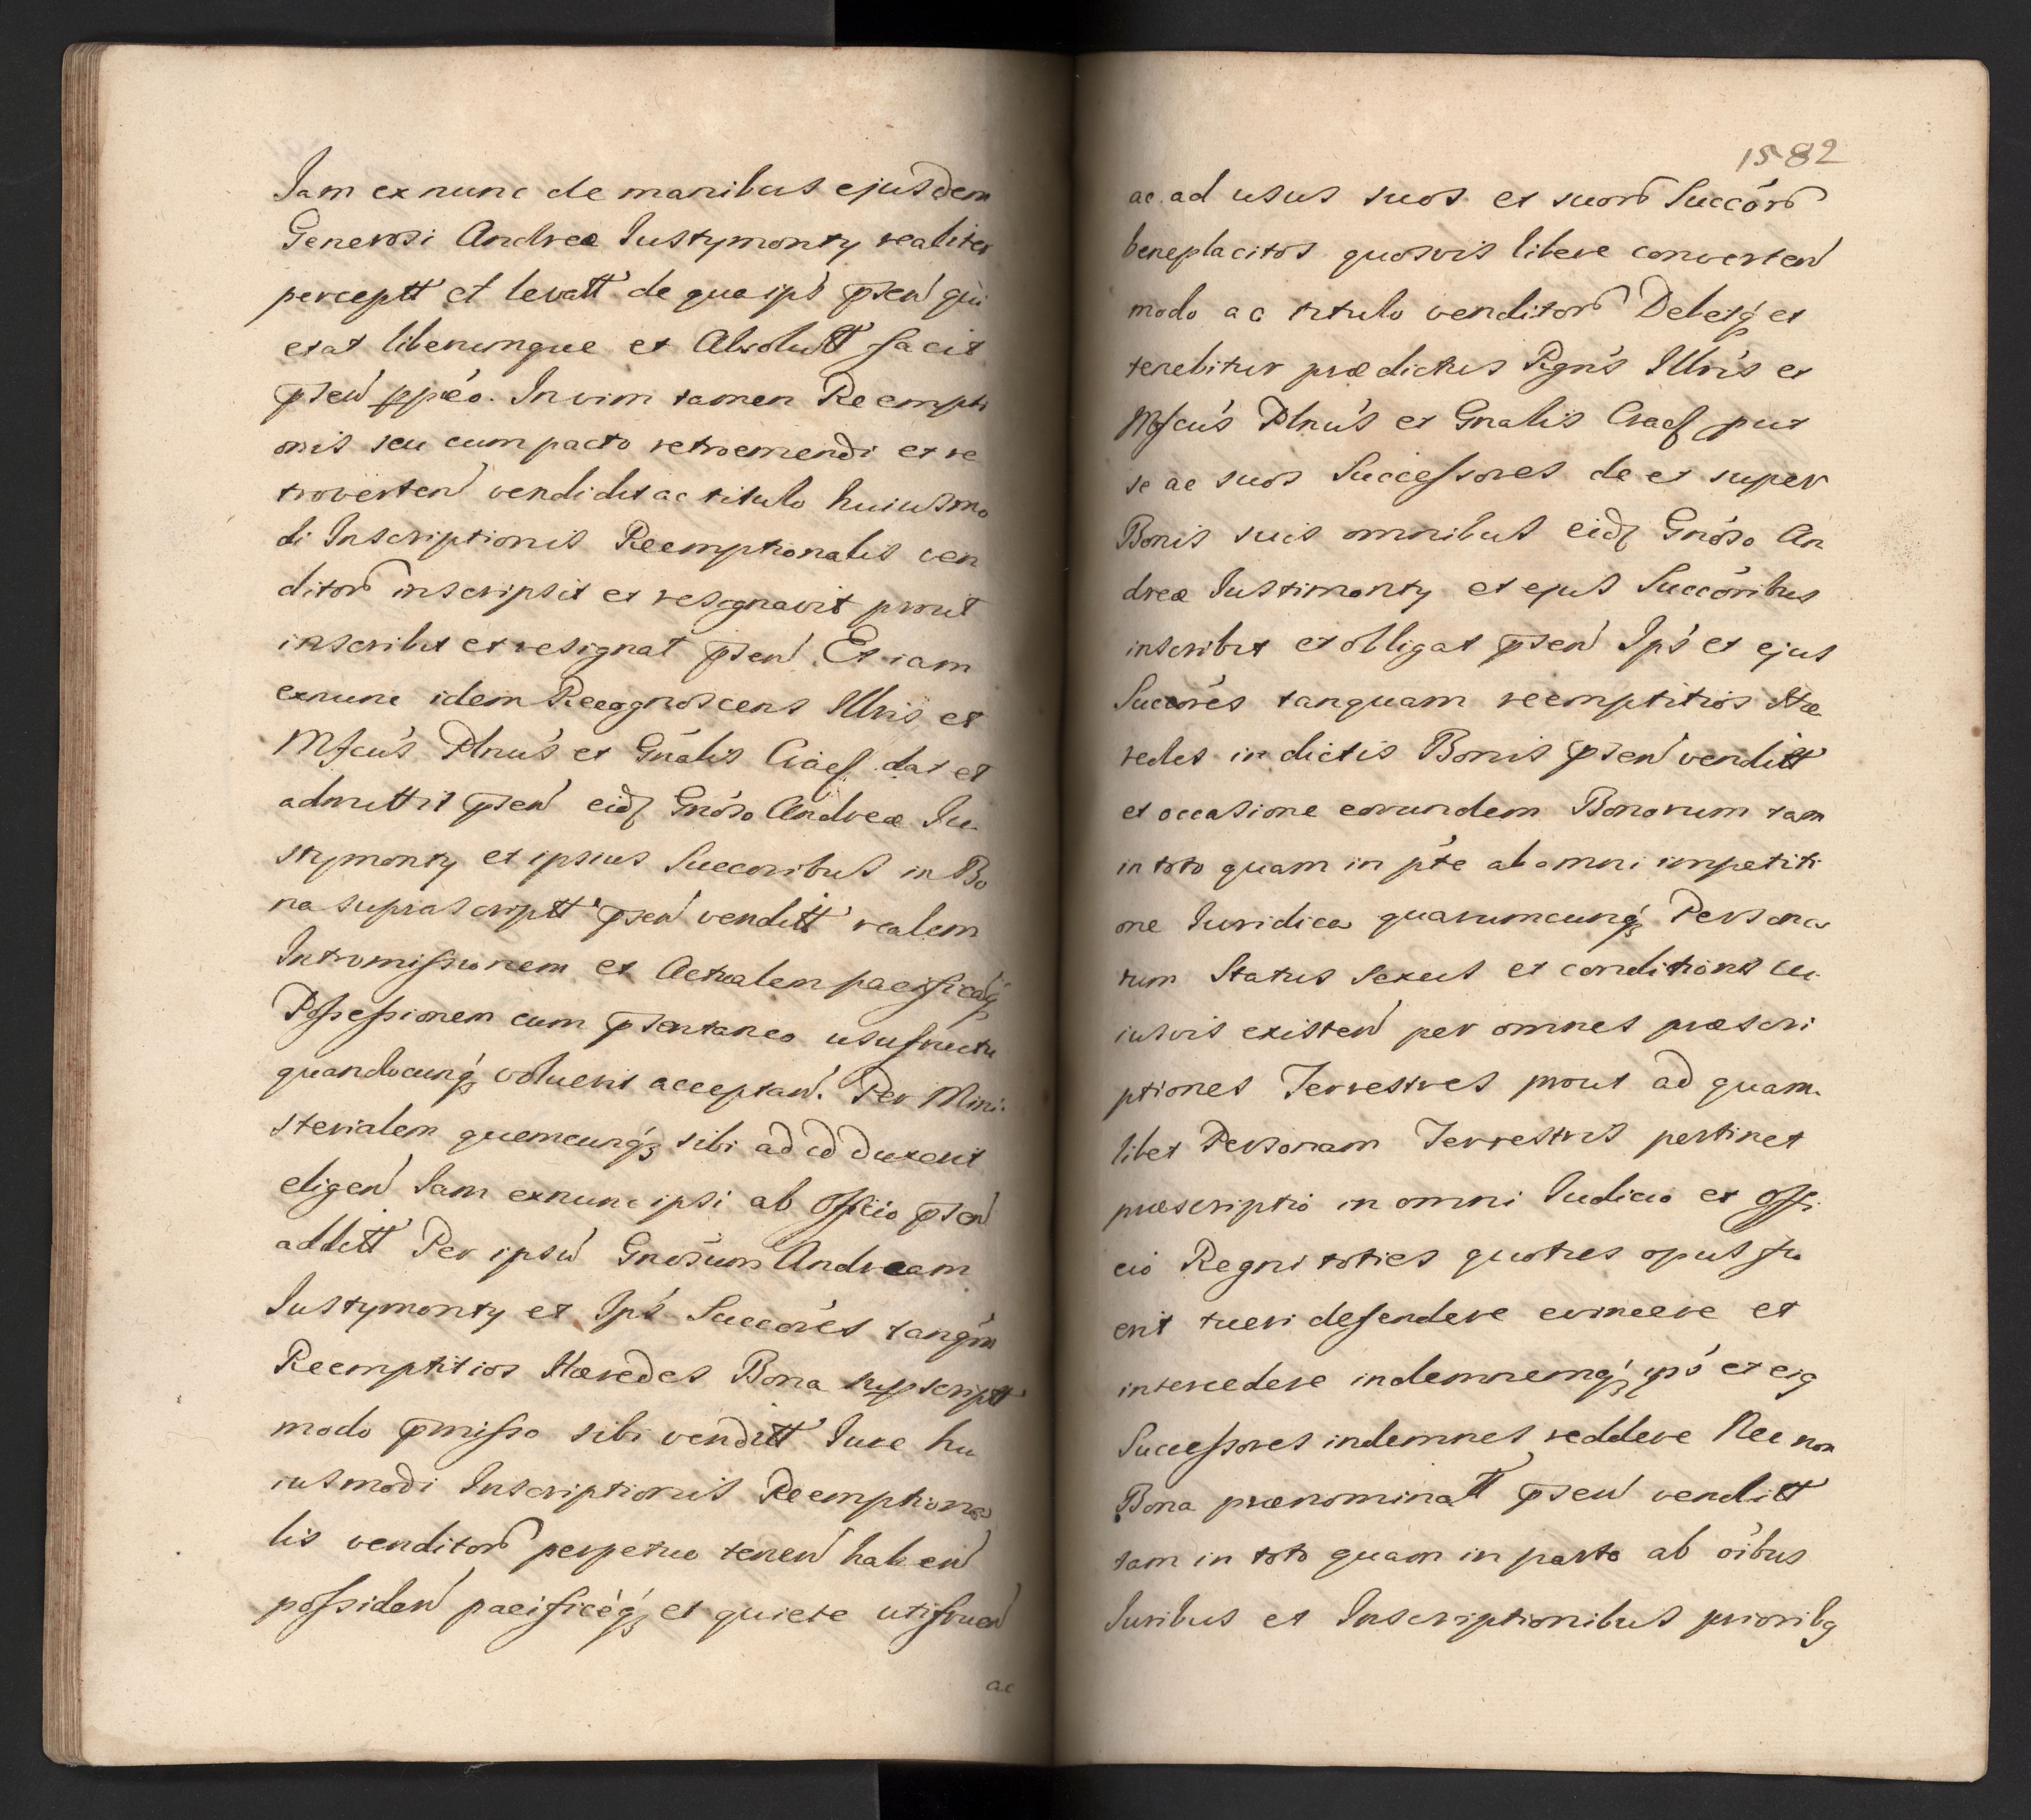 Iam ex nunc de manibus ejusdem
Generosi Andreæ Iustymonty realiter
perceptt et levatt de qua ips pseń qui
etat liberumque et Absolutt facit
pseń ppéo. In vim tamen Reempti
onis seu cum pacto retroemendi et re
troverteń vendidit ac titulo huiusmo
di Inscriptionis Reemptionalis ven
ditor inscripsit et resignavit prout
inscribit et resignat pseń. Et iam
exnunc idem Recognoscens Illris et
Mfcus Plnus et Gnalis Ciaes dat et
admittit pseń eidz Gnoso Andreæ Iu
stymonty et ipsius Succoribus in Bo
na suprascriptt pseń venditt realem
Intromissionem et Actualem pacificaqz
Possessionem cum psentaneo usufructu
quandocunqz voluerit acceptań. Per Mini-
sterialem quemcunqz sibi ad id duxerit
eligeń Iam exnunc ipsi ab Officio pseń
additt Per ipsū Gnosum Andream
Iustymonty et Ips Succores tanqm
Reemptitios Hæredes Bona supscriptt
modo pmisso sibi venditt Iure hu
iusmodi Inscriptionis Reemptiona
lis venditor perpetuo teneń habeń
possideń pacificeqz et quiete utifrueń
ac
1582
ac ad usus suos et suor Succor
beneplacitos quosvis libere converteń
modo ac titulo venditor Debetqz et
tenebitur prædictus Rgns Illris et
Mfcus Plnus et Gnalis Craes put
se ac suos Successores de et super
Bonis suis omnibus eidz Gnoso An
dreæ Iustimonty et ejus Succoribus
inscribit et obligat pseń Ips et ejus
Succores tanquam reemptitios Hæ
redes in dictis Bonis pseń venditt
et occasione eorundem Bonorum tam
in toto quam in pte ab omni impetiti
one Iuridica quarumcunqz Persona
rum Status Sexus et conditionis cu
iusvis existeń per omnes præscri
ptiones Terrestres prout ad quam
libet Personam Terrestris pertinet
præscriptio in omni Iudicio et Offi
cio Regni toties quoties opus fu
erit tueri defendere evincere et
intercedere indemnemqz ips et ejq
Successores indemnes reddere Nec non
Bona prænominatt pseń venditt
tam in toto quam in parte ab oibus
Iuribus et Inscriptionibus prioribq